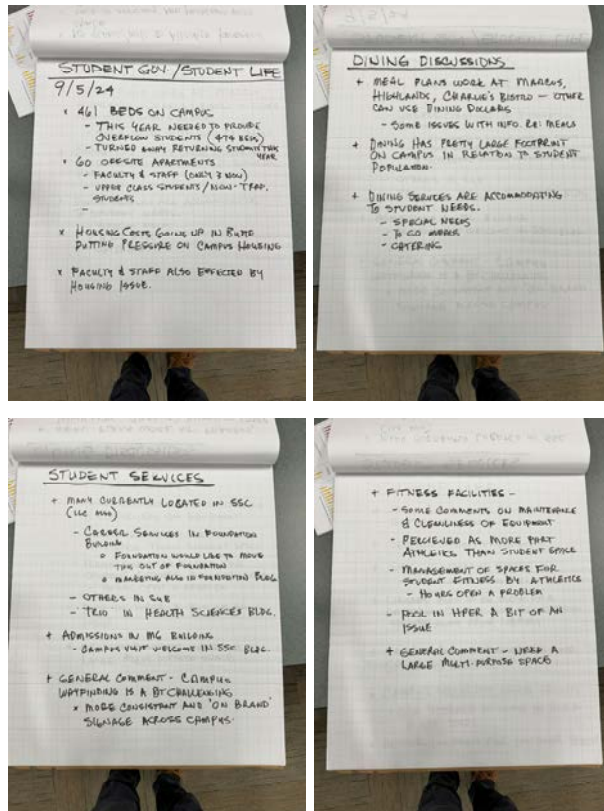 STUDENT GOV / STUDENT LIFE
9/5/24
x 461 BEDS ON CAMPUS
- THIS YEAR NEEDED TO PROVIDE
OVERFLOW STUDENTS (474 BEDS)
- TURNED AWAY RETURNING STUDENTS THIS
YEAR
x 60 OFFSITE APARTMENTS
- FACULTY & STAFF (ONLY 3 NOW)
- UPPER CLASS STUDENTS / NON-TRAD.
STUDENTS
-
x HOUSING COSTS GOING UP IN BUTTE
PUTTING PRESSURE ON CAMPUS HOUSING
x FACULTY & STAFF ALSO EFFECTED BY
HOUSING ISSUE.
DINING DISCUSSIONS
+ MEAL PLANS WORK AT MARCUS,
HIGHLANDS, CHARLIE'S BISTRO - OTHER
CAN USE DINING DOLLARS
- SOME ISSUES WITH INFO. RE: MEALS
+ DINING HAS PRETTY LARGE FOOTPRINT
ON CAMPUS IN RELATION TO STUDENT
POPULATION.
+ DINING SERVICES ARE ACCOMMODATING
TO STUDENT NEEDS.
- SPECIAL NEEDS
- TO GO ORDER
- CATERING
STUDENT SERVICES
+ MANY CURRENTLY LOCATED IN SSC
(LLC ALSO)
- CAREER SERVICES IN FOUNDATION
BUILDING
o FOUNDATION WOULD LIKE TO MOVE
THIS OUT OF FOUNDATION
o MARKETING ALSO IN FOUNDATION BLDG.
- OTHERS IN SUB
- TRIO IN HEALTH SCIENCES BLDG.
+ ADMISSIONS IN MG BUILDING
- CAMPUS VISIT WELCOME IN SSC BLDG.
+ GENERAL COMMENT - CAMPUS
WAYFINDING IS A BIT CHALLENGING
x MORE CONSISTENT AND 'ON BRAND'
SIGNAGE ACROSS CAMPUS.
+ FITNESS FACILITIES -
- SOME COMMENTS ON MAINTENANCE
& CLEANLINESS OF EQUIPMENT
- PERCEIVED AS MORE PART
ATHLETICS THAN STUDENT SPACE
- MANAGEMENT OF SPACES FOR
STUDENT FITNESS BY ATHLETICS
- HOURS OPEN A PROBLEM
- POOL IN HPER A BIT OF AN
ISSUE
+ GENERAL COMMENT - NEED A
LARGE MULTI-PURPOSE SPACE